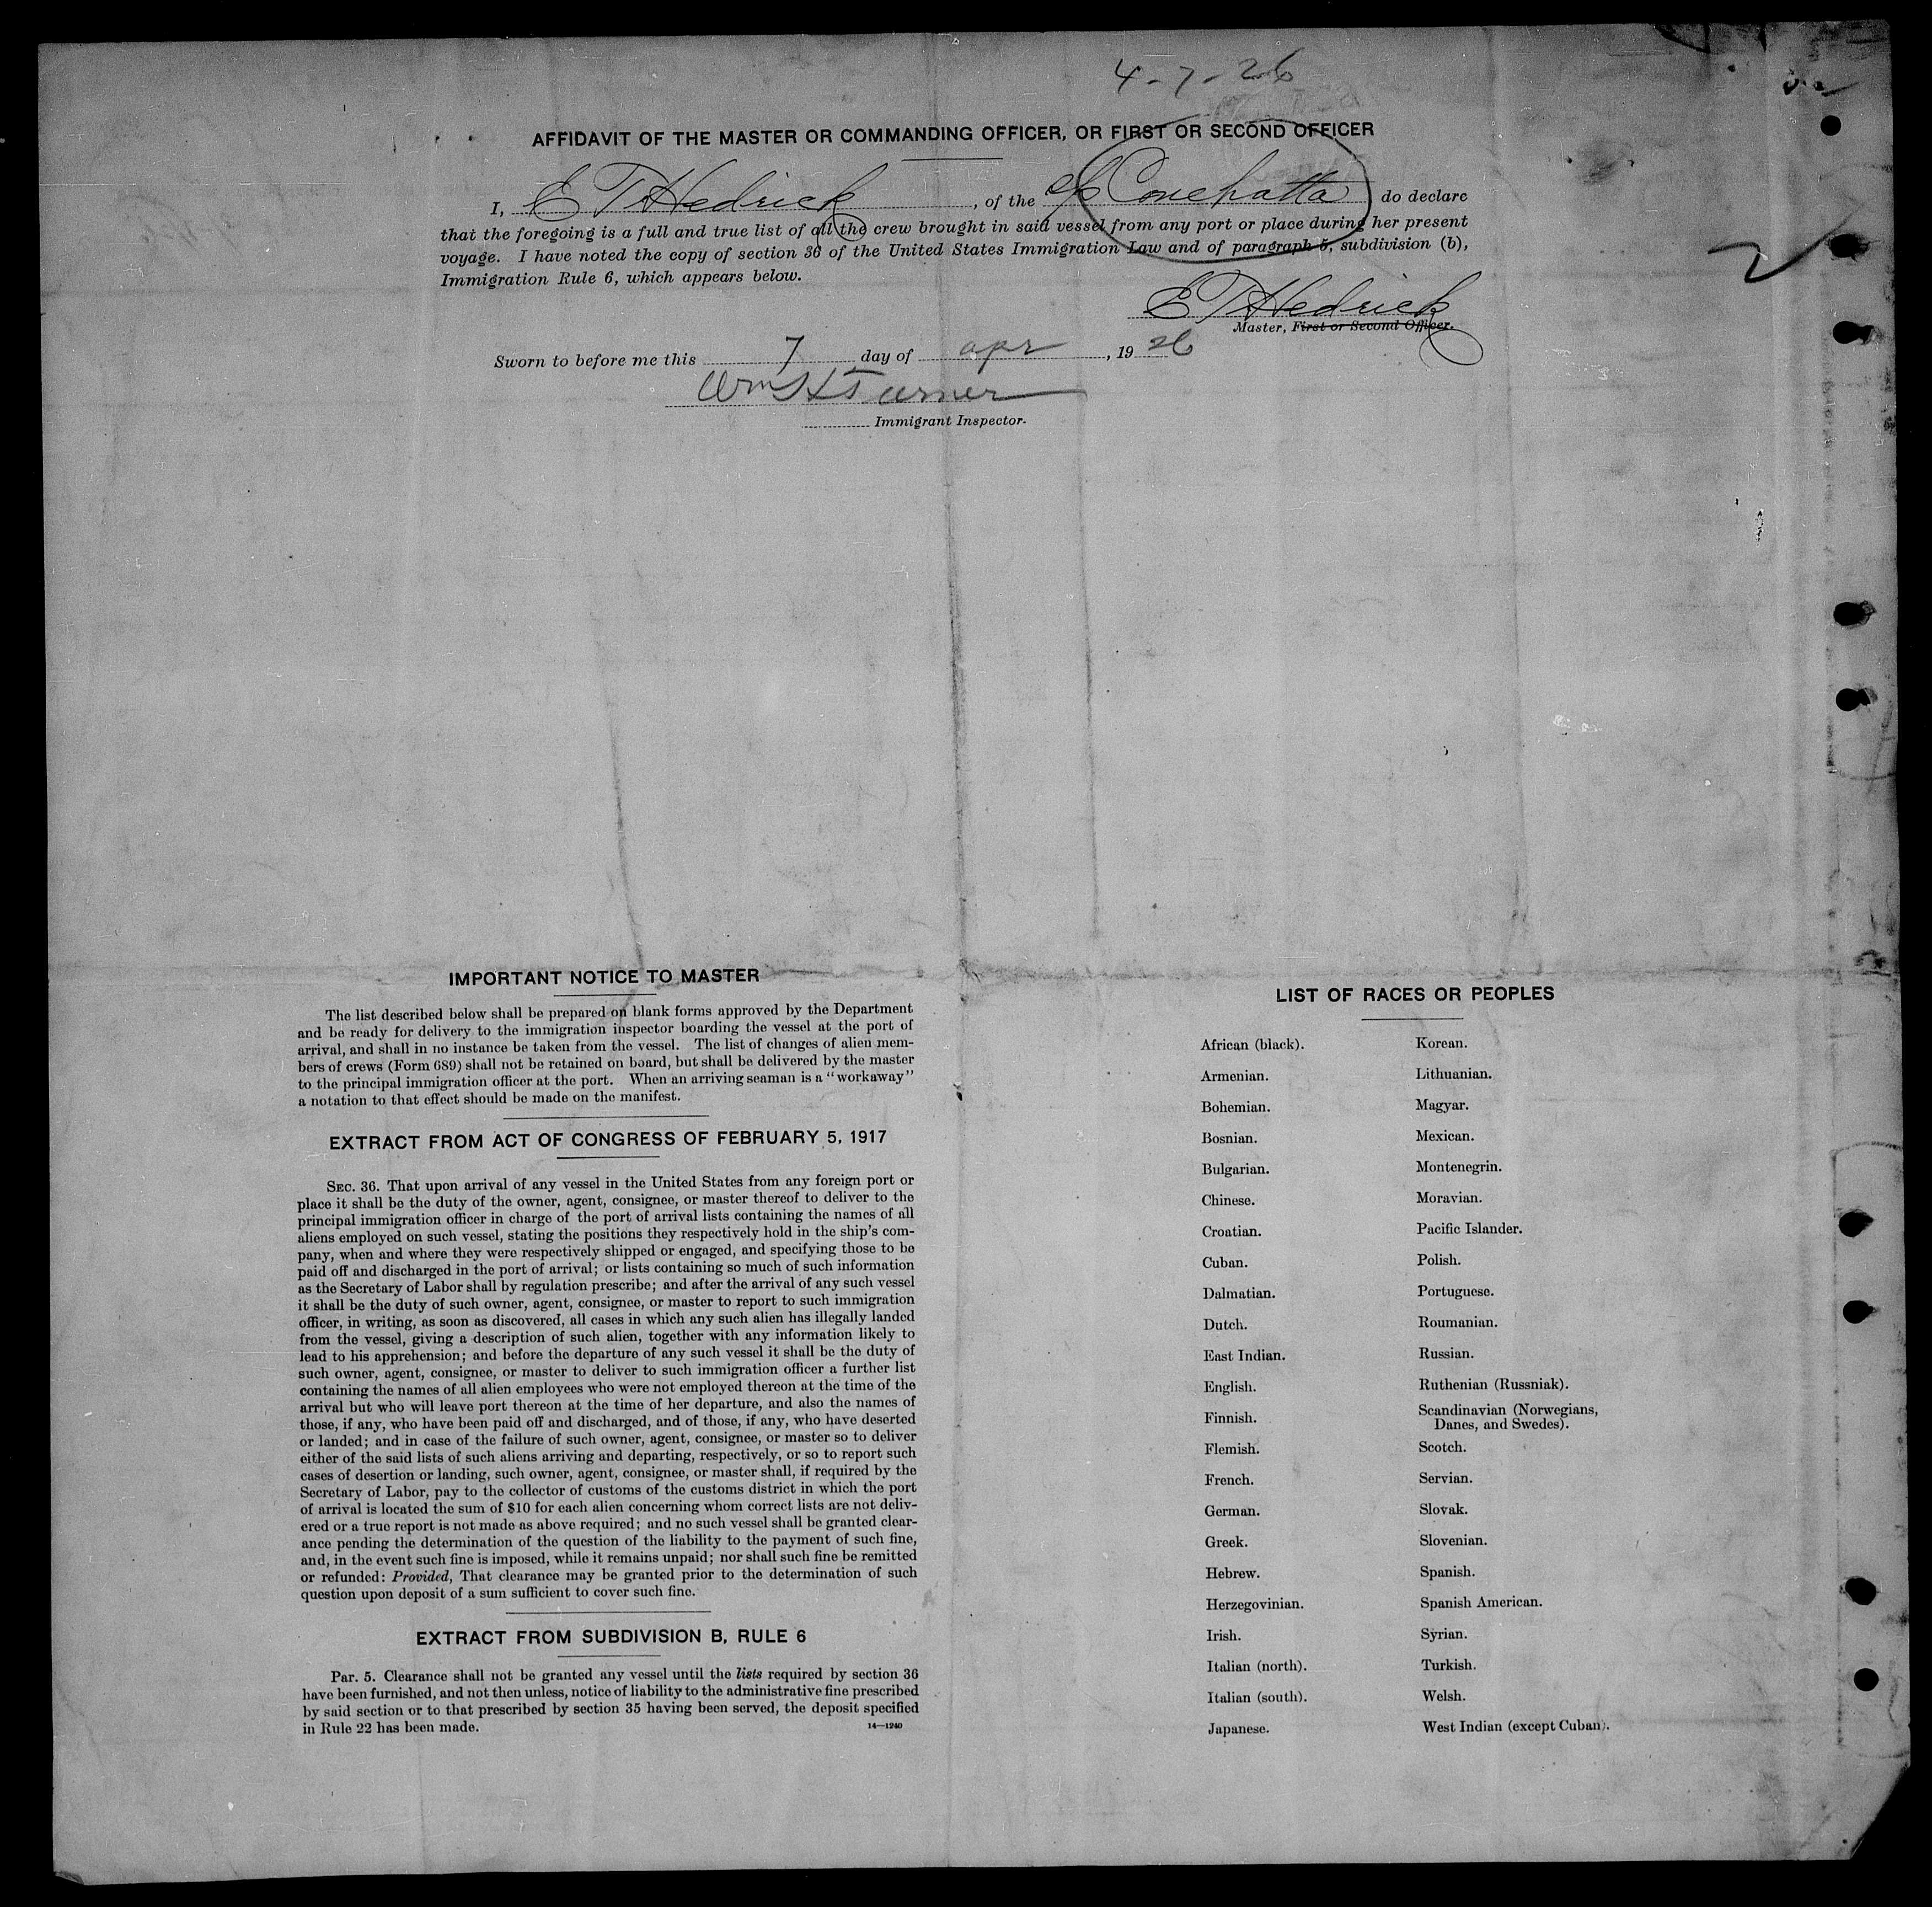 4-7-26
AFFIDAVIT OF THE MASTER OR COMMANDING OFFICER, OR FIRST OR SECOND OFFICER
I, E T Hedrick, of the Conehatta do declare
that the foregoing is a full and true list of all the crew brought in said vessel from any port or place during her present
voyage. I have noted the copy of section 36 of the United States Immigration Law and of paragraph 5, subdivision (b),
Immigration Rule 6, which appears below.
E T Hedrick
Master, First or Second Officer.
Sworn to before me this 7 day of apr, 1926
Wm H Turner
Immigrant Inspector.
IMPORTANT NOTICE TO MASTER
The list described below shall be prepared on blank forms approved by the Department
and be ready for delivery to the immigration inspector boarding the vessel at the port of
arrival, and shall in no instance be taken from the vessel. The list of changes of alien mem-
bers of crews (Form 689) shall not be retained on board, but shall be delivered by the master
to the principal immigration officer at the port. When an arriving seaman is a "workaway"
a notation to that effect should be made on the manifest.
EXTRACT FROM ACT OF CONGRESS OF FEBRUARY 5, 1917
SEC. 36. That upon arrival of any vessel in the United States from any foreign port or
place it shall be the duty of the owner, agent, consignee, or master thereof to deliver to the
principal immigration officer in charge of the port of arrival lists containing the names of all
aliens employed on such vessel, stating the positions they respectively hold in the ship's com-
pany, when and where they were respectively shipped or engaged, and specifying those to be
paid off and discharged in the port of arrival; or lists containing so much of such information
as the Secretary of Labor shall by regulation prescribe; and after the arrival of any such vessel
it shall be the duty of such owner, agent, consignee, or master to report to such immigration
officer, in writing, as soon as discovered, all cases in which any such alien has illegally landed
from the vessel, giving a description of such alien, together with any information likely to
lead to his apprehension; and before the departure of any such vessel it shall be the duty of
such owner, agent, consignee, or master to deliver to such immigration officer a further list
containing the names of all alien employees who were not employed thereon at the time of the
arrival but who will leave port thereon at the time of her departure, and also the names of
those, if any, who have been paid off and discharged, and of those, if any, who have deserted
or landed; and in case of the failure of such owner, agent, consignee, or master so to deliver
either of the said lists of such aliens arriving and departing, respectively, or so to report such
cases of desertion or landing, such owner, agent, consignee, or master shall, if required by the
Secretary of Labor, pay to the collector of customs of the customs district in which the port
of arrival is located the sum of $10 for each alien concerning whom correct lists are not deliv-
ered or a true report is not made as above required; and no such vessel shall be granted clear-
ance pending the determination of the question of the liability to the payment of such fine,
and, in the event such fine is imposed, while it remains unpaid; nor shall such fine be remitted
or refunded: Provided, That clearance may be granted prior to the determination of such
question upon deposit of a sum sufficient to cover such fine.
EXTRACT FROM SUBDIVISION B, RULE 6
Par. 5. Clearance shall not be granted any vessel until the lists required by section 36
have been furnished, and not then unless, notice of liability to the administrative fine prescribed
by said section or to that prescribed by section 35 having been served, the deposit specified
in Rule 22 has been made.
14—1240
LIST OF RACES OR PEOPLES
African (black).
Armenian.
Bohemian.
Bosnian.
Bulgarian.
Chinese.
Croatian.
Cuban.
Dalmatian.
Dutch.
East Indian.
English.
Finnish.
Flemish.
French.
German.
Greek.
Hebrew.
Herzegovinian.
Irish.
Italian (north).
Italian (south).
Japanese.
Korean.
Lithuanian.
Magyar.
Mexican.
Montenegrin.
Moravian.
Pacific Islander.
Polish.
Portuguese.
Roumanian.
Russian.
Ruthenian (Russniak).
Scandinavian (Norwegians,
Danes, and Swedes).
Scotch.
Servian.
Slovak.
Slovenian.
Spanish.
Spanish American.
Syrian.
Turkish.
Welsh.
West Indian (except Cuban).